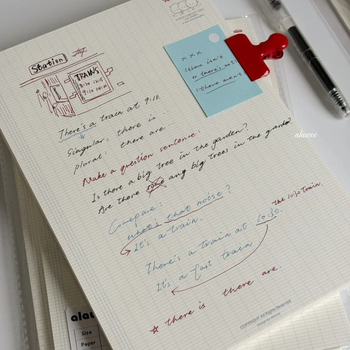 Station
TRAINS
There's a train at 9:10.
Singular, there is
plural, there are.
Make a question sentence.
Is there a big tree in the garden?
Are there ang big trees in the garden
Compare:
what's that noise?
It's a train.
the 10:30 train
There's a train at 10:30.
It's a fast train
there is there are.
there isn't
or there's no
there aren't
alaw
Size
Paper